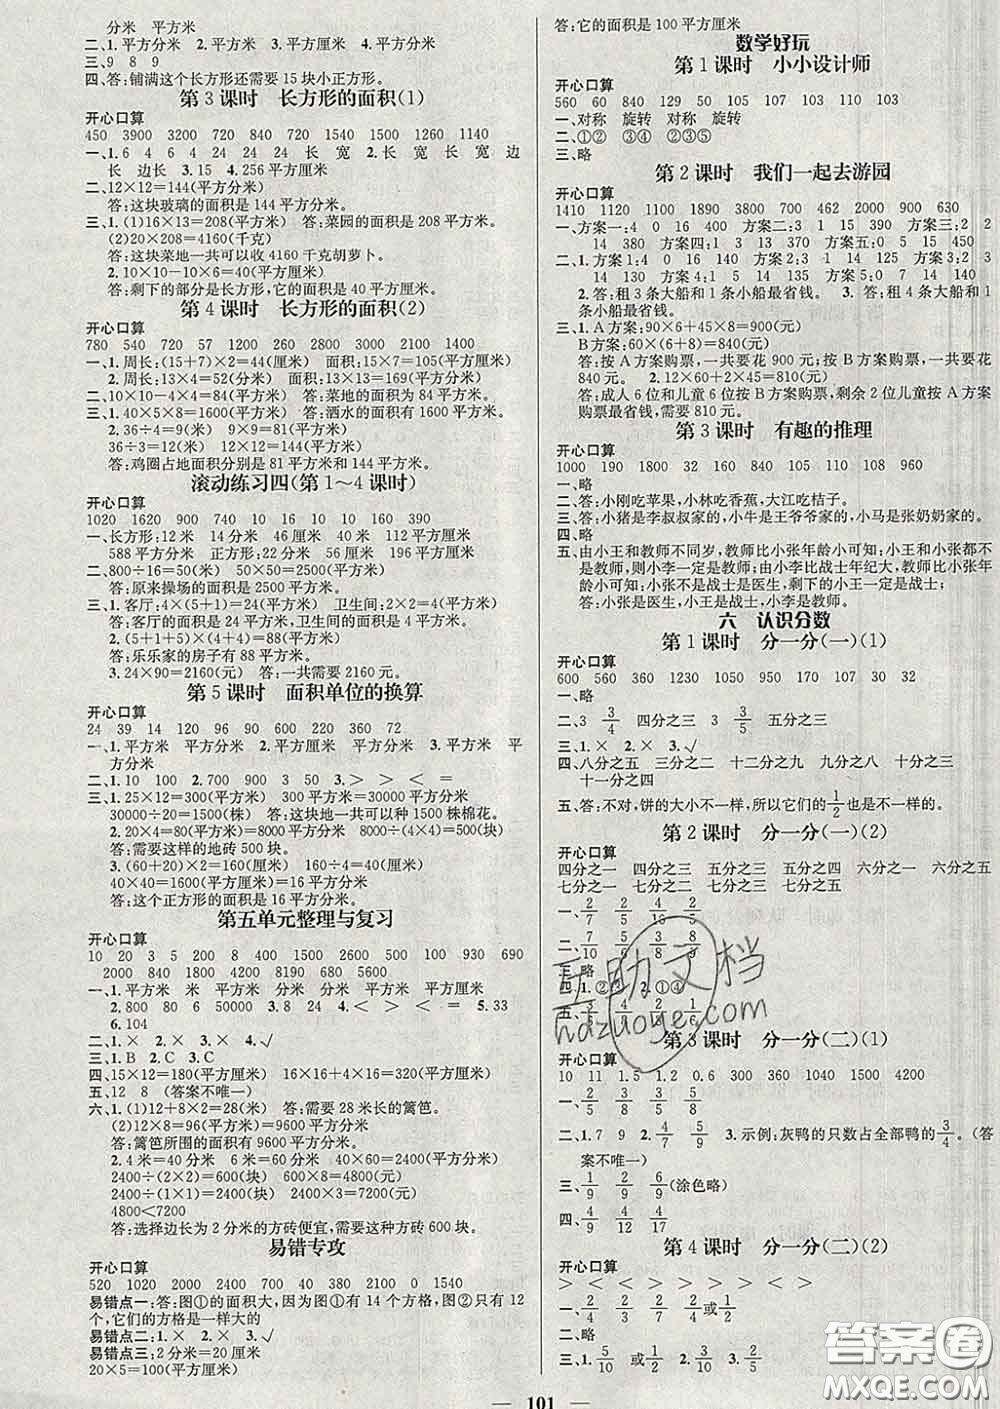 分米 平方米
二、1.平方分米 2.平方米 3.平方厘米 4.平方米
三、9 8 9
四、答:铺满这个长方形还需要 15 块小正方形。
第 3 课时 长方形的面积(1)
开心口算
450 3900 3200 720 840 720 1540 1500 1260 1140
一、1. 6 4 6 4 24 24 24 长 宽 2. 长 宽 长 宽 边
长 边长 3. 15 4. 256 平方厘米
二、12×12=144(平方分米)
答:这块玻璃的面积是 144 平方分米。
三、1.(1)16×13=208(平方米) 答:菜园的面积是 208 平方米。
(2)20×208=4160(千克)
答:这块菜地一共可以收 4160 千克胡萝卜。
2. 10×10-10×6=40(平方厘米)
答:剩下的部分是长方形,它的面积是 40 平方厘米。
第 4 课时 长方形的面积(2)
开心口算
780 540 720 57 1200 260 2800 3000 2100 1400
一、1.周长:(15+7)×2=44(厘米) 面积:15×7=105(平方厘米)
2.周长:13×4=52(分米) 面积:13×13=169(平方分米)
二、10×10-4×4=84(平方米) 答:菜地的面积为 84 平方米。
三、1. 40×5×8=1600(平方米) 答:洒水的面积有 1600 平方米。
2. 36÷4=9(米) 9×9=81(平方米)
36÷3=12(米) 12×12=144(平方米)
答:鸡圈占地面积分别是 81 平方米和 144 平方米。
滚动练习四(第 1～4 课时)
开心口算
1020 1620 900 740 10 16 10 10 160 390
一、长方形:12 米 14 分米 46 厘米 48 厘米 112 平方米
588 平方分米 正方形:22 分米 56 厘米 196 平方厘米
二、800÷16=50(米) 50×50=2500(平方米)
答:原来操场的面积是 2500 平方米。
三、1.客厅:4×(5+1)=24(平方米) 卫生间:2×2=4(平方米)
答:客厅的面积是 24 平方米,卫生间的面积是 4 平方米。
2.(5+1+5)×(4+4)=88(平方米)
答:乐乐家的房子有 88 平方米。
3. 24×90=2160(元) 答:一共需要 2160 元。
第 5 课时 面积单位的换算
开心口算
24 39 14 120 96 90 600 220 360 72
一、1.平方米 平方分米 2.平方厘米 平方分米 3.平方米 平
方分米
二、1. 10 100 2. 700 900 3. > < > < =
三、1. 25×12=300(平方米) 300 平方米=30000 平方分米
30000÷20=1500(株) 答:这块地一共可以种 1500 株棉花。
2. 20×4=80(平方米)=8000(平方分米) 8000÷(4×4)=500(块)
答:需要这样的地砖 500 块。
3.(60+20)×2=160(厘米) 160÷4=40(厘米)
40×40=1600(平方厘米)=16 平方分米
答:这个正方形的面积是 16 平方分米。
第五单元整理与复习
开心口算
10 20 3 5 200 8 400 1500 50 600 930 690
2000 840 1820 2000 4800 9680 5600
一、1.平方米 米 平方厘米 分米 平方分米 平方米
2. 800 80 6 50000 3. 28 4. < > < = 5. 33
6. 104
二、1. × 2. × 3. × 4. √
三、1. B 2. C 3. C
四、15×12=180(平方厘米) 16×16+4×4=272(平方厘米)
五、12 8 (答案不唯一)
六、1.(1)12+8×2=28(米) 答:需要 28 米长的篱笆。
(2)12×8=96(平方米) 96×100=9600(元)
答:篱笆所围的面积有 9600 平方米。
2. 4 米=40 分米 6 米=60 分米 40×60=2400(平方分米)
2400÷(2×2)=600(块) 600×8=4800(元)
2400÷(1×1)=2400(块) 2400×3=7200(元)
4800<7200
答:选择边长为 2 分米的方砖便宜,需要这种方砖 600 块。
易错专攻
开心口算
520 1020 2000 2400 700 40 380 2100 0 1540
易错点一:答:图①的面积大,因为图①有 14 个方格,图②只有 12
个,它们的方格是一样大的
易错点二:1. × 2. × 3. √
易错点三:2 米=20 分米
20×5=100(平方厘米)
答:它的面积是 100 平方厘米
数学好玩
第 1 课时 小小设计师
开心口算
560 60 840 129 50 105 107 103 110 103
一、对称 旋转 对称 旋转
二、①② ③④ ②③⑤
三、略
第 2 课时 我们一起去游园
开心口算
1410 1120 1100 1890 3800 700 462 2000 900 630
一、方案一:4 0 16 400 方案二:3 1 15 390 方案三:2 2
14 380 方案四:1 3 13 370 方案五:0 5 15 450
二、1.方案 1:4 0 16 140 方案2:3 1 14 125 方案3:2 3
14 130 方案4:1 5 14 135 方案5:0 6 12 120
2.答:租 3 条大船和 1 条小船最省钱。 3.答:租 4 条大船和
1 条小船最省钱。
三、1. A 方案:90×6+45×8=900(元)
B 方案:60×(6+8)=840(元)
答:按 A 方案购票,一共要花 900 元;按 B 方案购票,一共要花
840 元。 2. 12×60+2×45=810(元)
答:成人 6 位和儿童 6 位按 B 方案购票,剩余 2 位儿童按 A 方案
购票最省钱,需要 810 元。
第 3 课时 有趣的推理
开心口算
1000 190 1800 32 160 105 110 108 960
一、略
二、答:小刚吃苹果,小林吃香蕉,大江吃桔子。
三、答:小猪是李叔叔家的,小牛是王爷爷家的,小马是张奶奶家的。
四、略
五、由小王和教师不同岁,教师比小张年龄小可知:小王和小张都不
是教师,则小李一定是教师;由小李比战士年纪大,教师比小张年
龄小可知:小张不是战士是医生,剩下的小王一定是战士;
答:小张是医生,小王是战士,小李是教师。
六 认识分数
第 1 课时 分一分(一)(1)
开心口算
600 560 360 1230 1050 950 350 107 30 32
一、略
二、3 3/4 四分之三 3 3/5 五分之三
三、1. × 2. × 3. √
四、八分之五 三分之二 十二分之九 九分之八 十六分之十
十一分之四
五、答:不对,饼的大小不一样,所以它们的1/2也不一样大。
第 2 课时 分一分(一)(2)
开心口算
四分之一 四分之三 五分之三 五分之四 六分之一 六分之五
七分之一 七分之二 七分之三 七分之五
三、略
第 3 课时 分一分(二)(1)
开心口算
10 11 1.5 1.2 0.6 300 360 1040 1500 4200
二、1. 7 9 2. 4/7 5/9 3.示例:灰鸭的只数占全部鸭的3/4。(答
案不唯一)
三、1/9 2/9 6/9(涂色略)
四、4/9 4/12 4/17
第 4 课时 分一分(二)(2)
开心口算
二、略
三、1. 5/10 或1/2 2. 3/10 3.
— 101 —
互助文档
hdzuoye.com
答案圈
MXQE.COM